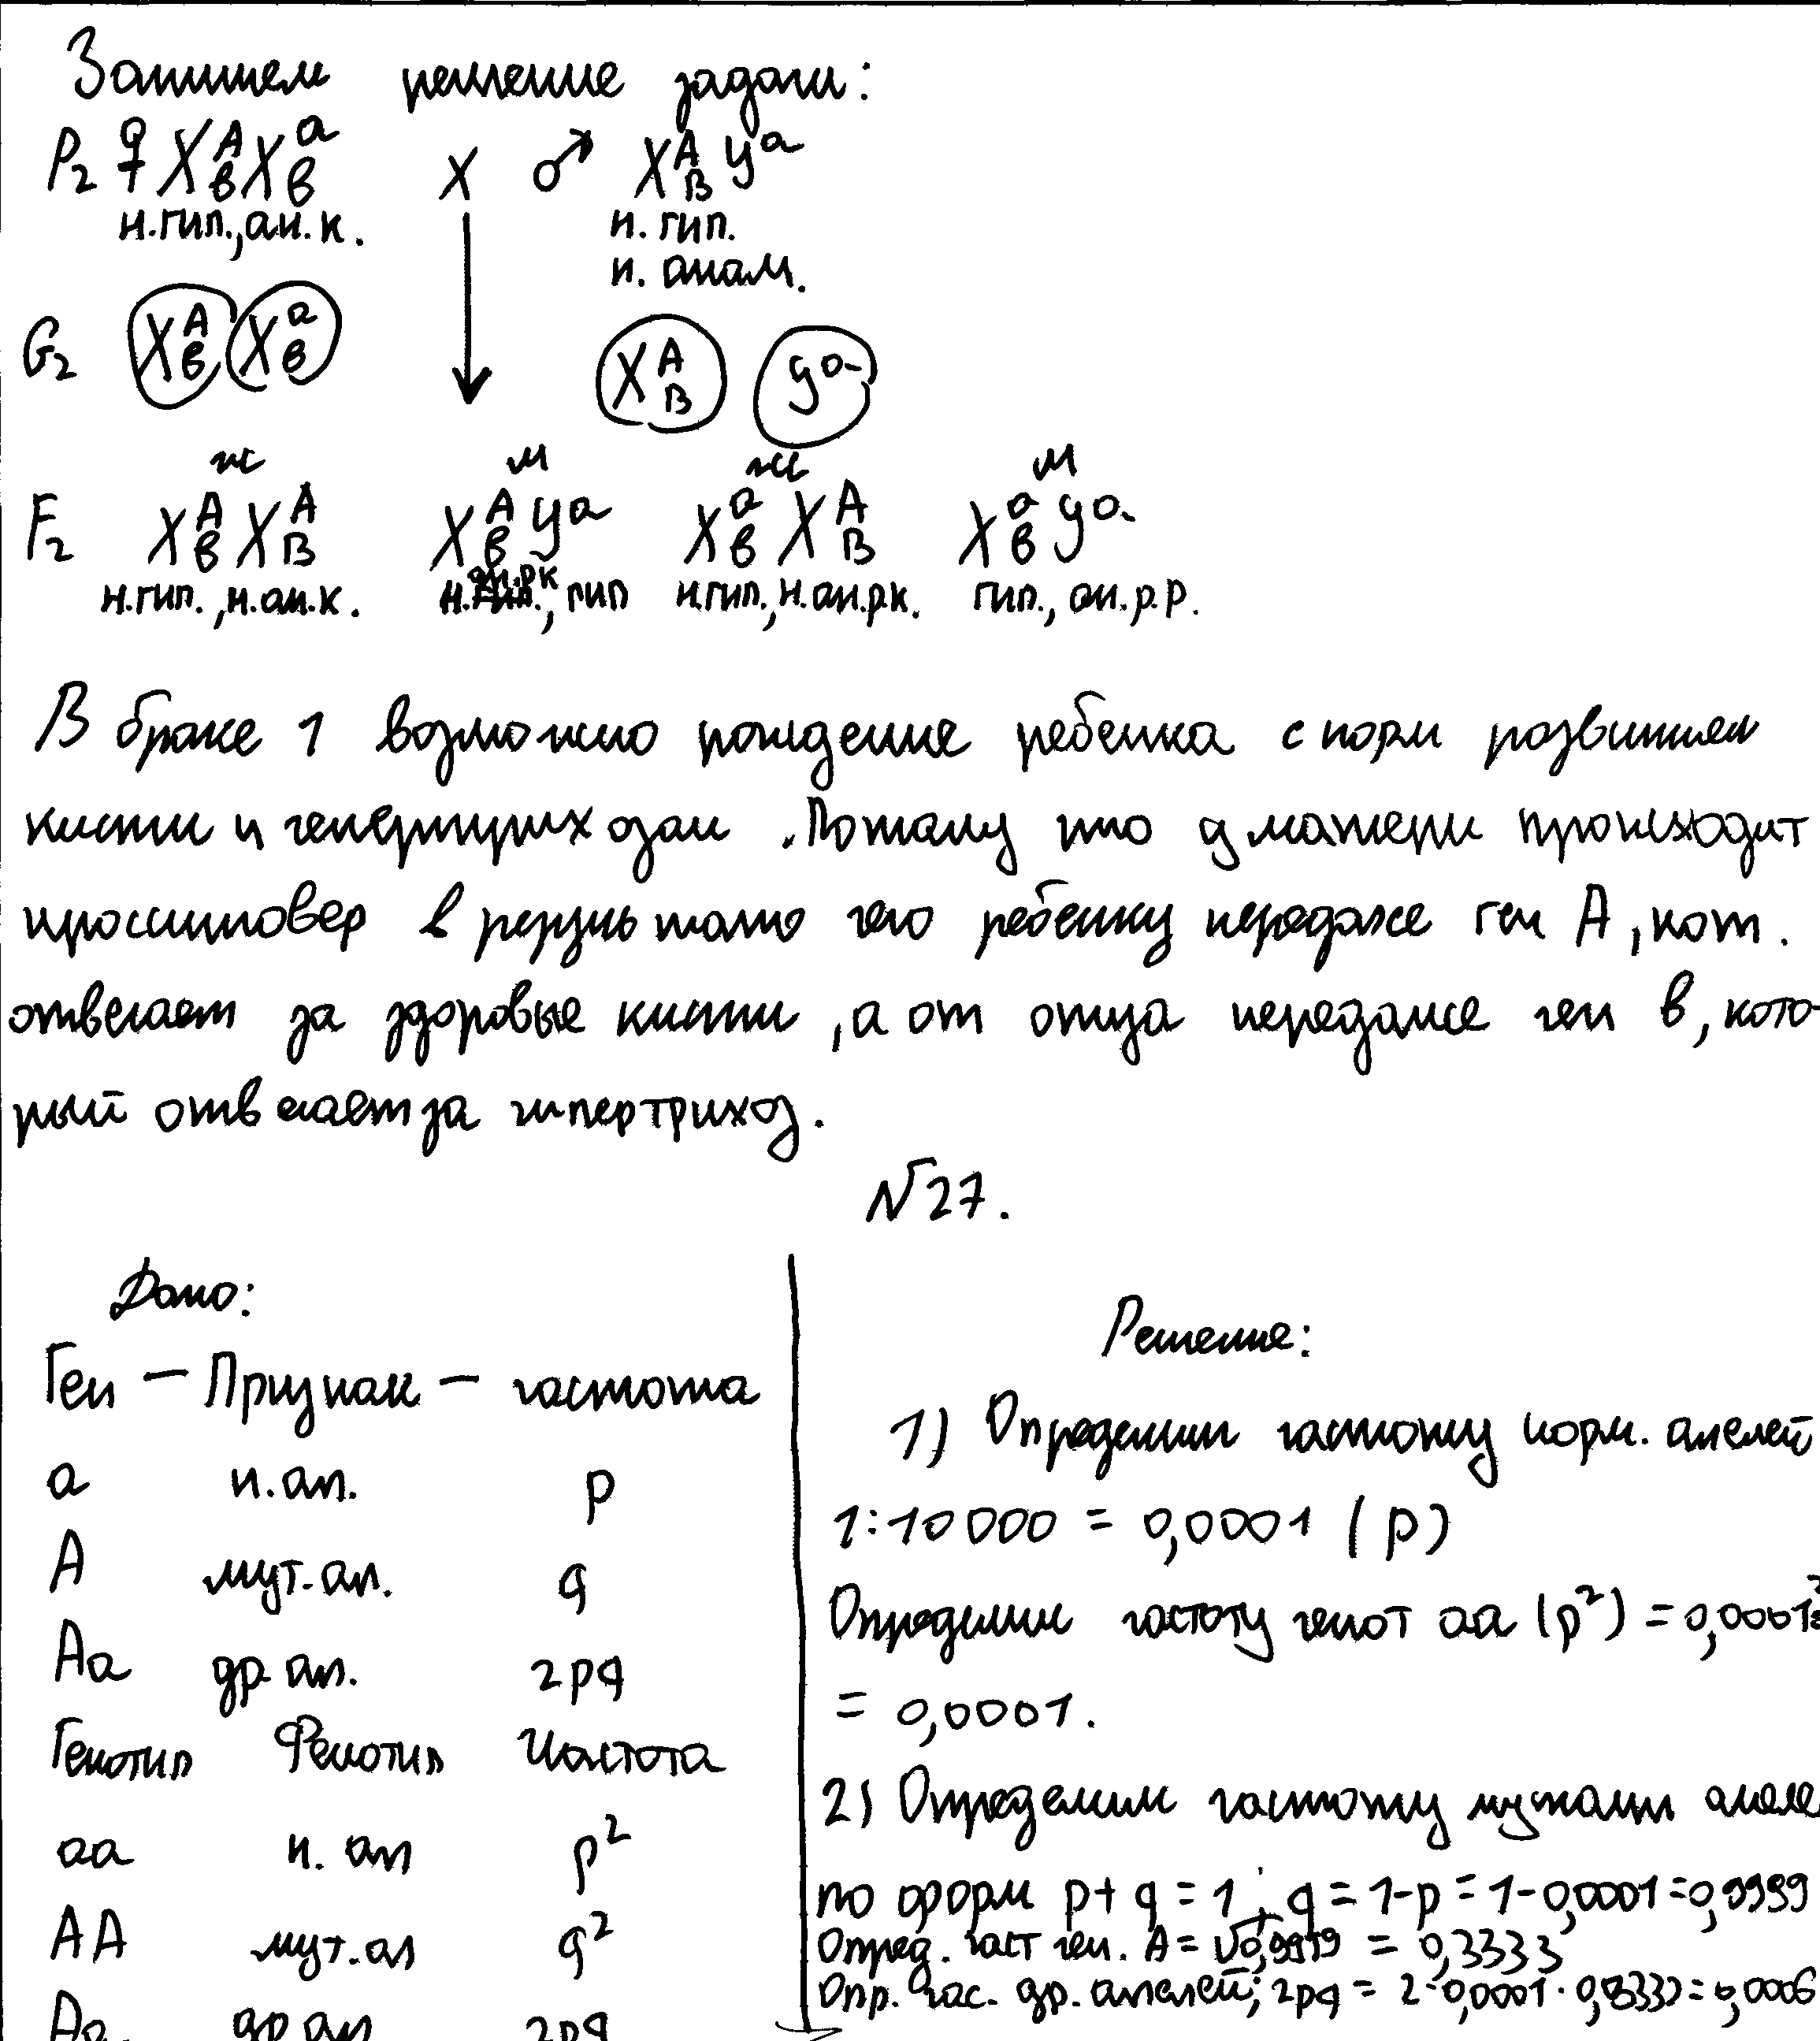 Запишем решение задачи:
P₂ ♀ X^A_в X^a_в × ♂ X^A_B У^a
н.гип., ан.к. н. гип.
н. аном.
G₂ X^A_в X^a_в X^A_B У^a
ж м ж м
F₂ X^A_в X^A_B X^A_в У^a X^a_в X^A_B X^a_в У^a
ан.рк
н.гип., н.ан.к. н.гип., гип н.гип., н.ан.рк. гип., ан.р.р.
В браке 1 возможно рождение ребенка с норм развитием
кисти и гипертрихозом. Потому что у матери происходит
кроссинговер в результате чего ребенку передаже ген А, кот.
отвечает за здоровые кисти, а от отца передаже ген в, кото-
рый отвечает за гипертрихоз.
№27.
Дано:
Ген – Признак – частота
а н.ал. p
А мут.ал. q
Аа др.ал. 2pq
Генотип Фенотип Частота
аа н. ал p²
АА мут.ал q²
Аа др ал 2pq
Решение:
1) Определим частоту норм. алелей
1:10000 = 0,0001 (p)
Определим частоту генот аа (p²) = 0,0001²
= 0,0001.
2) Определим частоту мутации алеле
по форм p + q = 1; q = 1-p = 1-0,0001 = 0,9999
Опред. част ген. А = √0,9999 = 0,3333
Опр. час. др. алелей; 2pq = 2·0,0001·0,3333 = 0,0006